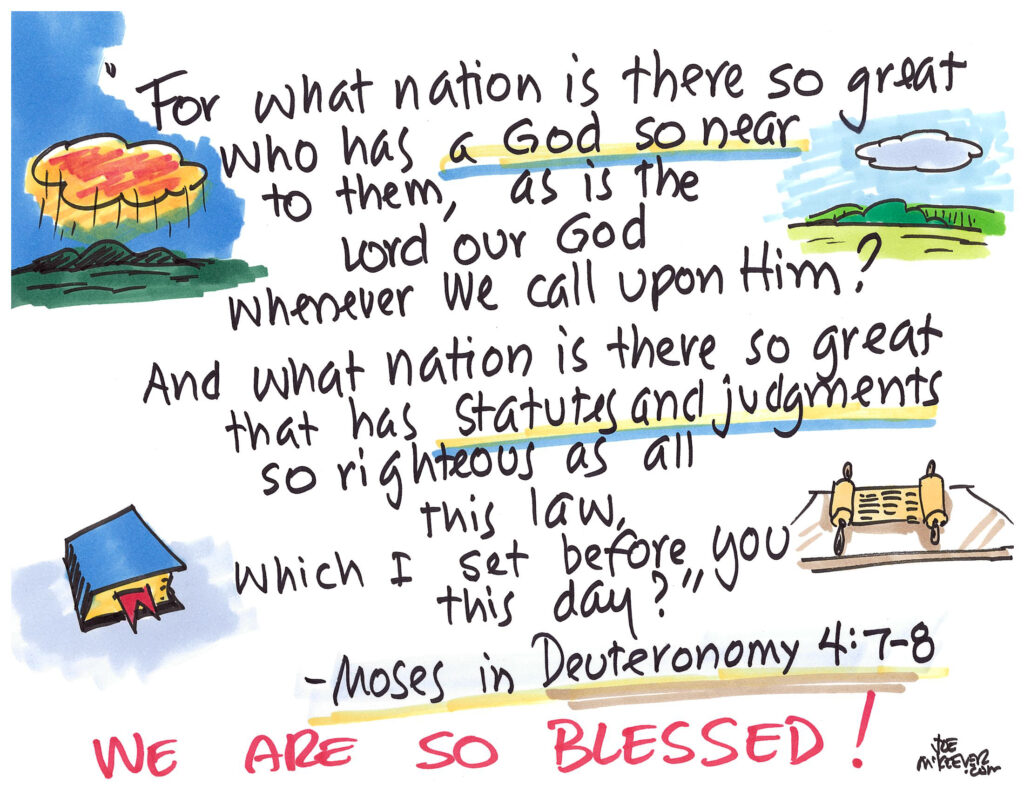 "For what nation is there so great
who has a God so near
to them, as is the
Lord our God
whenever We call upon Him?
And what nation is there so great
that has statutes and judgments
so righteous as all
this law,
which I set before you
this day?"
-Moses in Deuteronomy 4:7-8
WE ARE SO BLESSED!
JOE
McKEEVER
.com